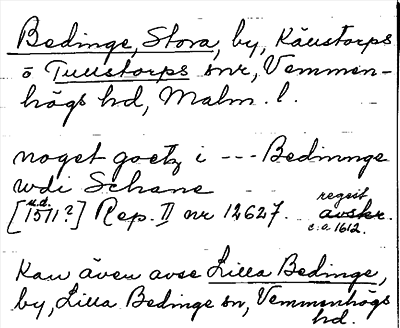 Bedinge, Stora, by, Källstorps
o Tullstorps snr, Vemmen-
högs hd, Malm. l.
noget goetz i --- Bedinnge
wdi Schane
[u.d. 1511?] Rep. II nr 12627. regest avskr. c.a 1612.
Kan även avse Lilla Bedinge,
by, Lilla Bedinge sn, Vemmenhögs
hd.